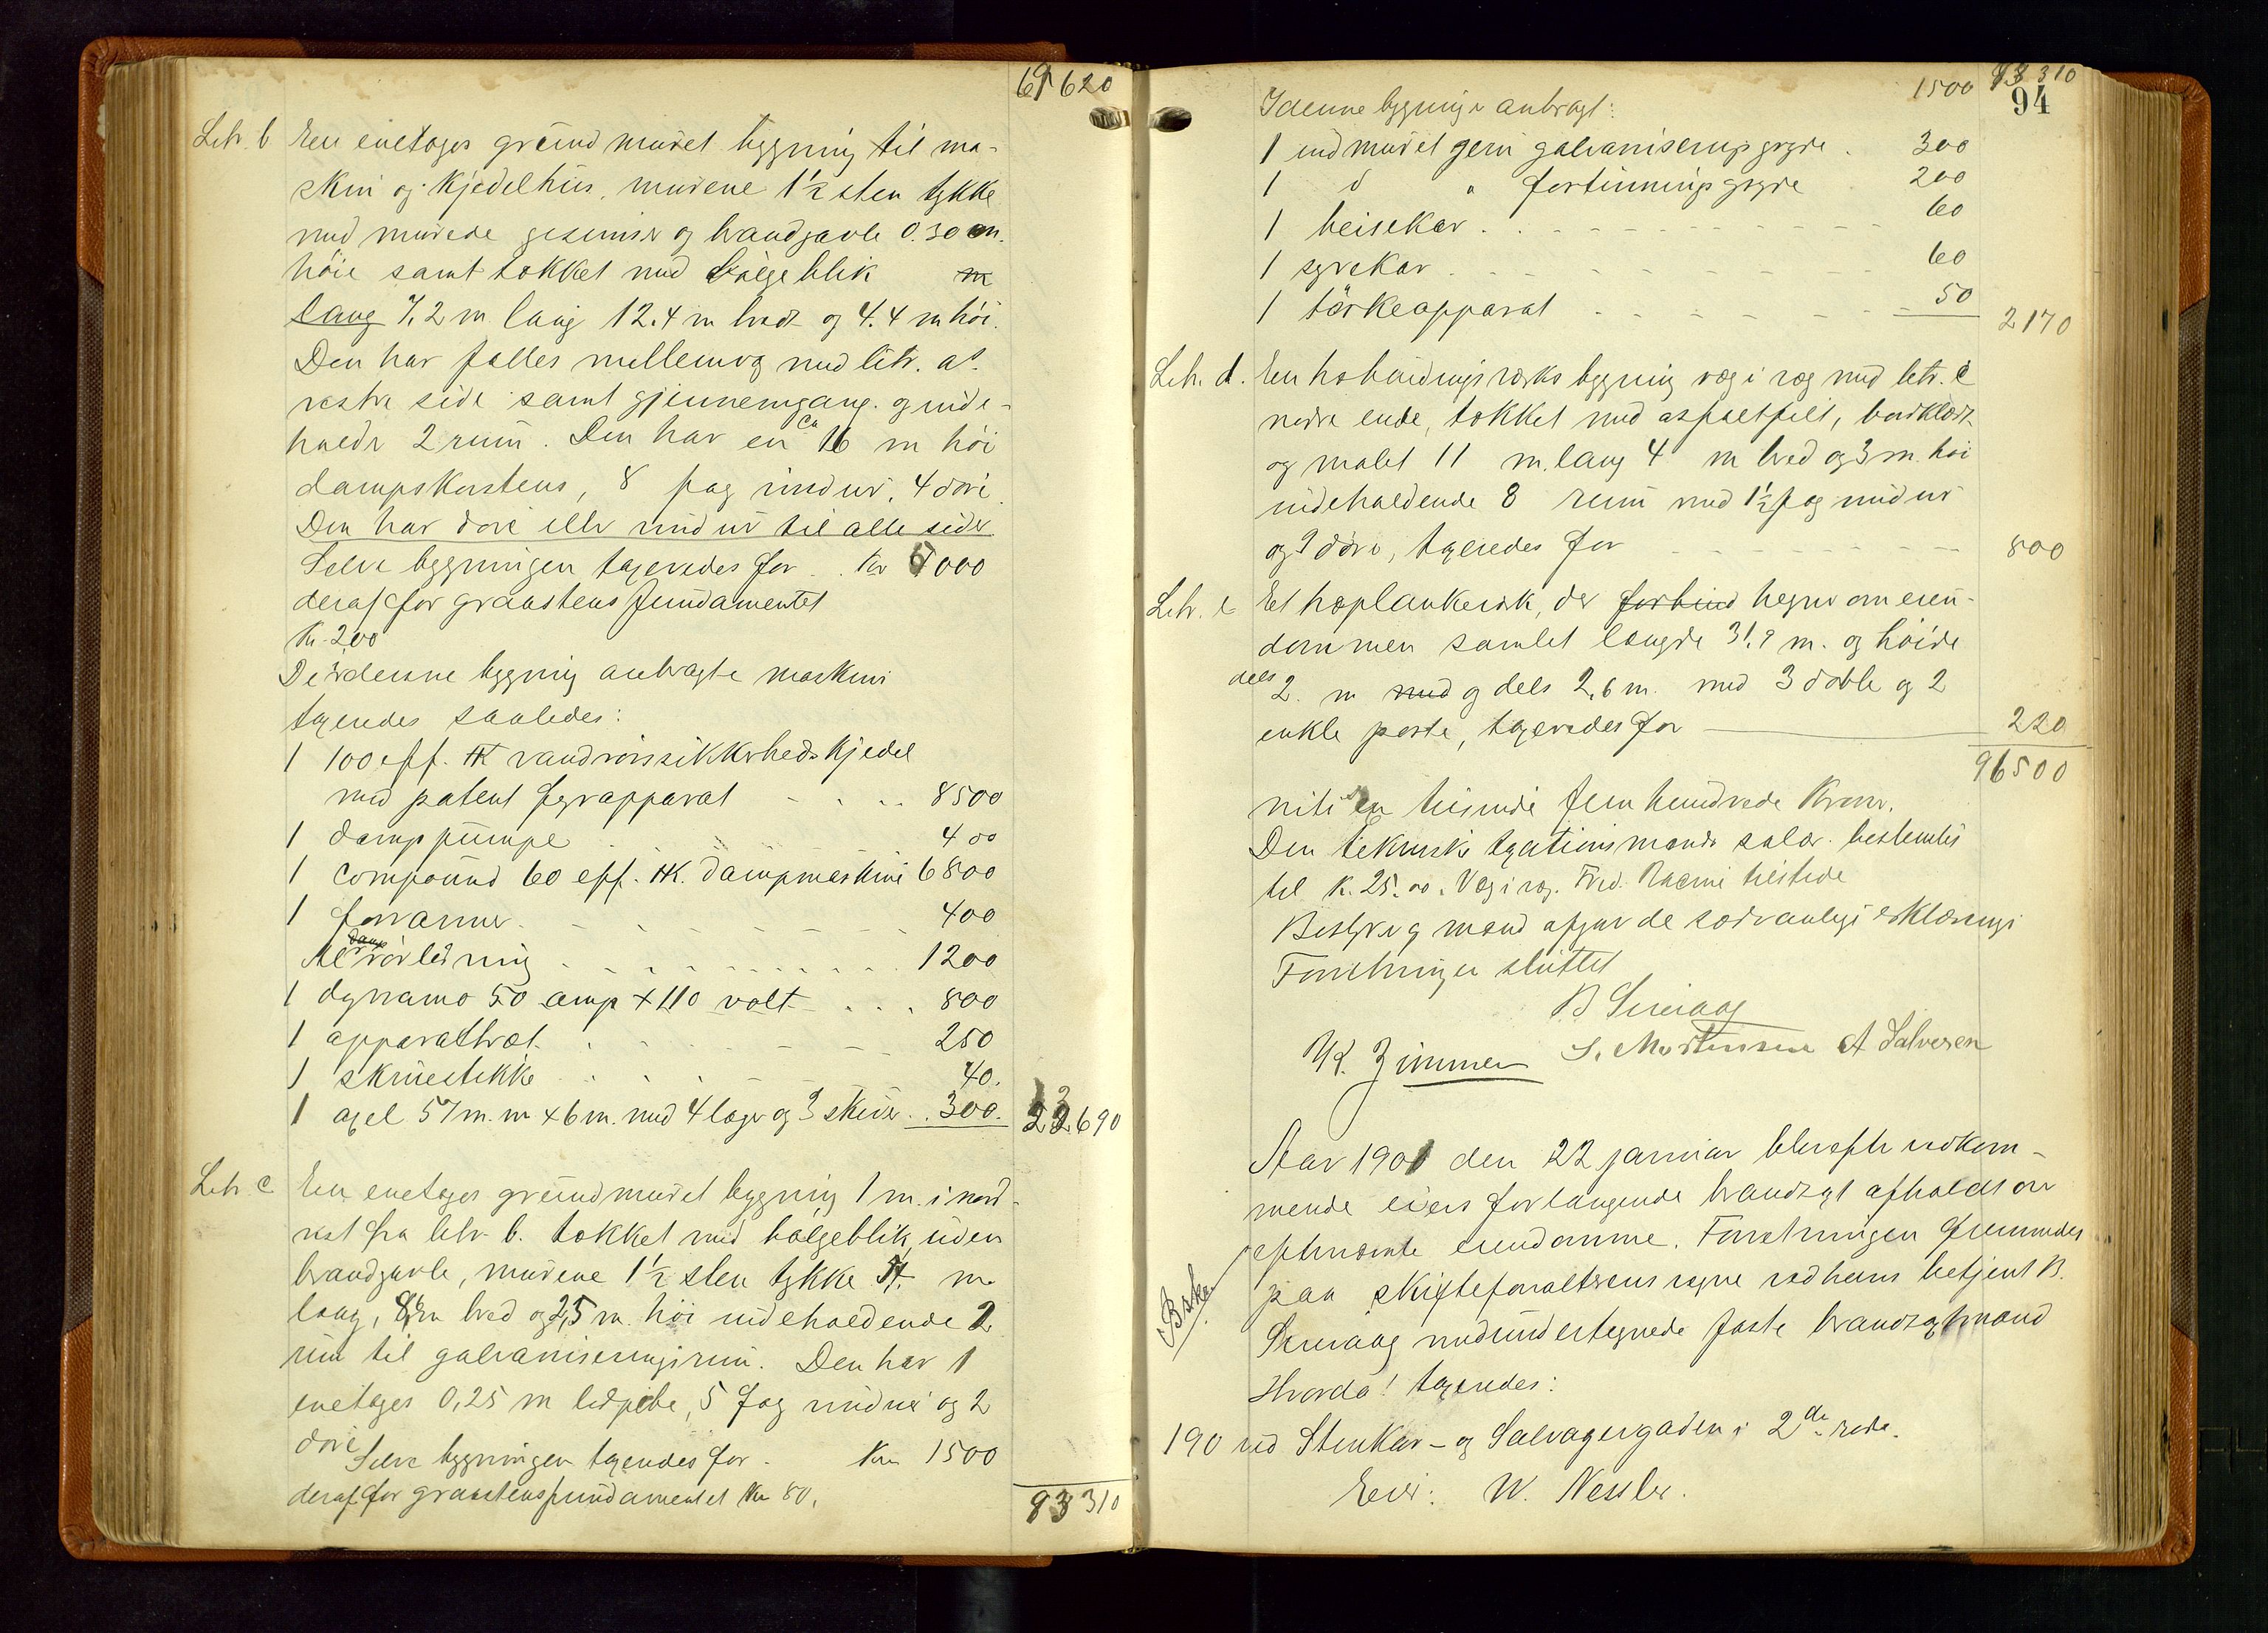 69620
Litr. b En enetages grundmuret bygning til ma-
skin og kjedelhus, murene 1½ sten tykke
med murede gesimser og brandgavle 0.30 m.
høie samt tækket med bølgeblik m
lang 7,2 m lang 12.4 m bred og 4.4 m høi.
Den har fælles mellemvæg med litr. a's
vestre side samt gjennemgang. og inde-
holdr 2 rum. Den har en ca 16 m høi
dampskorstens, 8 fag vinduer, 4 døre.
Den har døre eller vinduer til alle sider.
Selve bygningen taxeredes for .. Kr 5000
deraf for graastens fundamentet
Kr. 200
De i denne bygning anbragte maskiner
taxeredes saaledes:
1 100 eff. HK vandrørssikkerhedskjedel
med patent fyrapparat - . . . 8500
1 damppumpe . 400
1 compound 60 eff. HK. dampmaskine 6800
1 forvarmer . . . 400
damp
Al rørledning . . . 1200
1 dynamo 50 amp + 110 volt . . . 800
1 apparatbræt . . . 250
1 skruestikke . . . 40.
1 axel 57 m.m + 6 m. med 4 lager og 3 skiver . . 300. 23690
Litr. c En enetages grundmuret bygning 1 m. i nord-
vest fra litr. b. tækket med bølgeblik, uden
brandgavle, murene 1½ sten tykke m
lang, m bred og 2,5 m. høi indeholdende 2
rum til galvaniseringsrum. Den har 1
enetages 0,25 m ledpibe, 5 fag vinduer og 2
døre
Selve bygningen taxeredes for . Kr 1500
deraf for graastensfundamentet Kr 80.
93310
1500 93310
94
I denne bygning er anbragt:
1 indmuret jern galvaniserings gryde . 300
1 d " fortinnings gryde 200
1 beisekar . . . 60
1 syrekar . . . 60
1 tørkeapparat . . . 50
2170
Litr. d. En bindingsverks bygning væg i væg med litr. c
nedre ende, tækket med asfaltfilt, bordklædt
og malet 11 m. lang 4 m bred og 3 m. høi
indeholdende 8 rum med 1½ fag vinduer
og 9 døre, taxeredes for - - - 800
Litr. e Et høplankeværk, der forbind hegner om eien-
dommen samlet længde 31.9 m. og høide
dels 2. m med og dels 2,6 m. med 3 doble og 2
enkle porte, taxeredes for 220
96500
niti sex tusinde fem hundrede Kroner.
Den tekniske taxationsmands salær bestemtes
til K. 25.00. Væg i væg. Fred. Racine tilstede
Bestyrer og mænd afgav de sædvanlige erklæringer
Forretningen sluttet
B Sømaag
W. Zimmer S. Mortensen A Salvesen
Aar 1901 den 22 januar blev efter vedkom-
mende eiers forlangende brandtaxt afholdt over
efternævnte eiendomme. Forretningen fremmedes
paa skifteforvalterens vegne ved hans betjent B.
Sømaag med undertegnede faste brandtaxtmænd
Hvorda! taxeredes:
Besk.
190 ved Stenkar- og Salvagergaden i 2de rode.
Eier: W. Nessler.